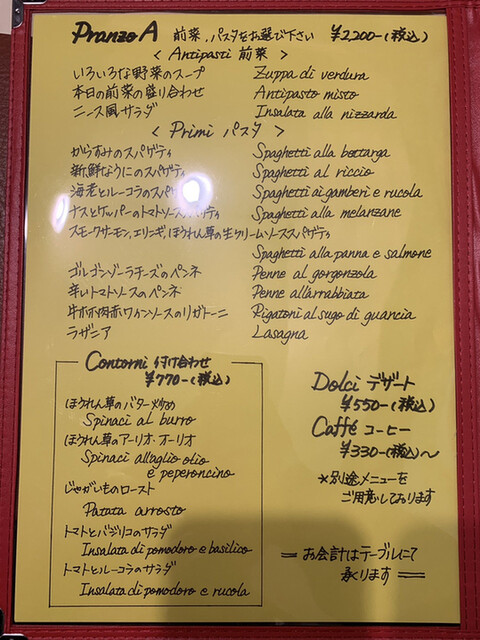 Pranzo A 前菜、パスタをお選び下さい ¥2,200-(税込)
< Antipasti 前菜 >
いろいろな野菜のスープ Zuppa di verdura
本日の前菜の盛り合わせ Antipasto misto
ニース風サラダ Insalata alla nizzarda
< Primi パスタ >
からすみのスパゲティ Spaghetti alla bottarga
新鮮なうにのスパゲティ Spaghetti al riccio
海老とルーコラのスパゲティ Spaghetti ai gamberi e rucola
ナスとケッパーのトマトソーススパゲティ Spaghetti alla melanzane
スモークサーモン、エリンギ、ほうれん草の生クリームソーススパゲティ
Spaghetti alla panna e salmone
ゴルゴンゾーラチーズのペンネ Penne al gorgonzola
辛いトマトソースのペンネ Penne all'arrabbiata
牛ホホ肉赤ワインソースのリガトーニ Rigatoni al sugo di guancia
ラザニア Lasagna
Contorni 付け合わせ
¥770-(税込)
ほうれん草のバター炒め
Spinaci al burro
ほうれん草のアーリオ・オーリオ
Spinaci all'aglio olio
e peperoncino
じゃがいものロースト
Patata arrosto
トマトとバジリコのサラダ
Insalata di pomodoro e basilico
トマトとルーコラのサラダ
Insalata di pomodoro e rucola
Dolci デザート
¥550-(税込)
Caffé コーヒー
¥330-(税込)~
*別途メニューを
ご用意しております
お会計はテーブルにて
承ります